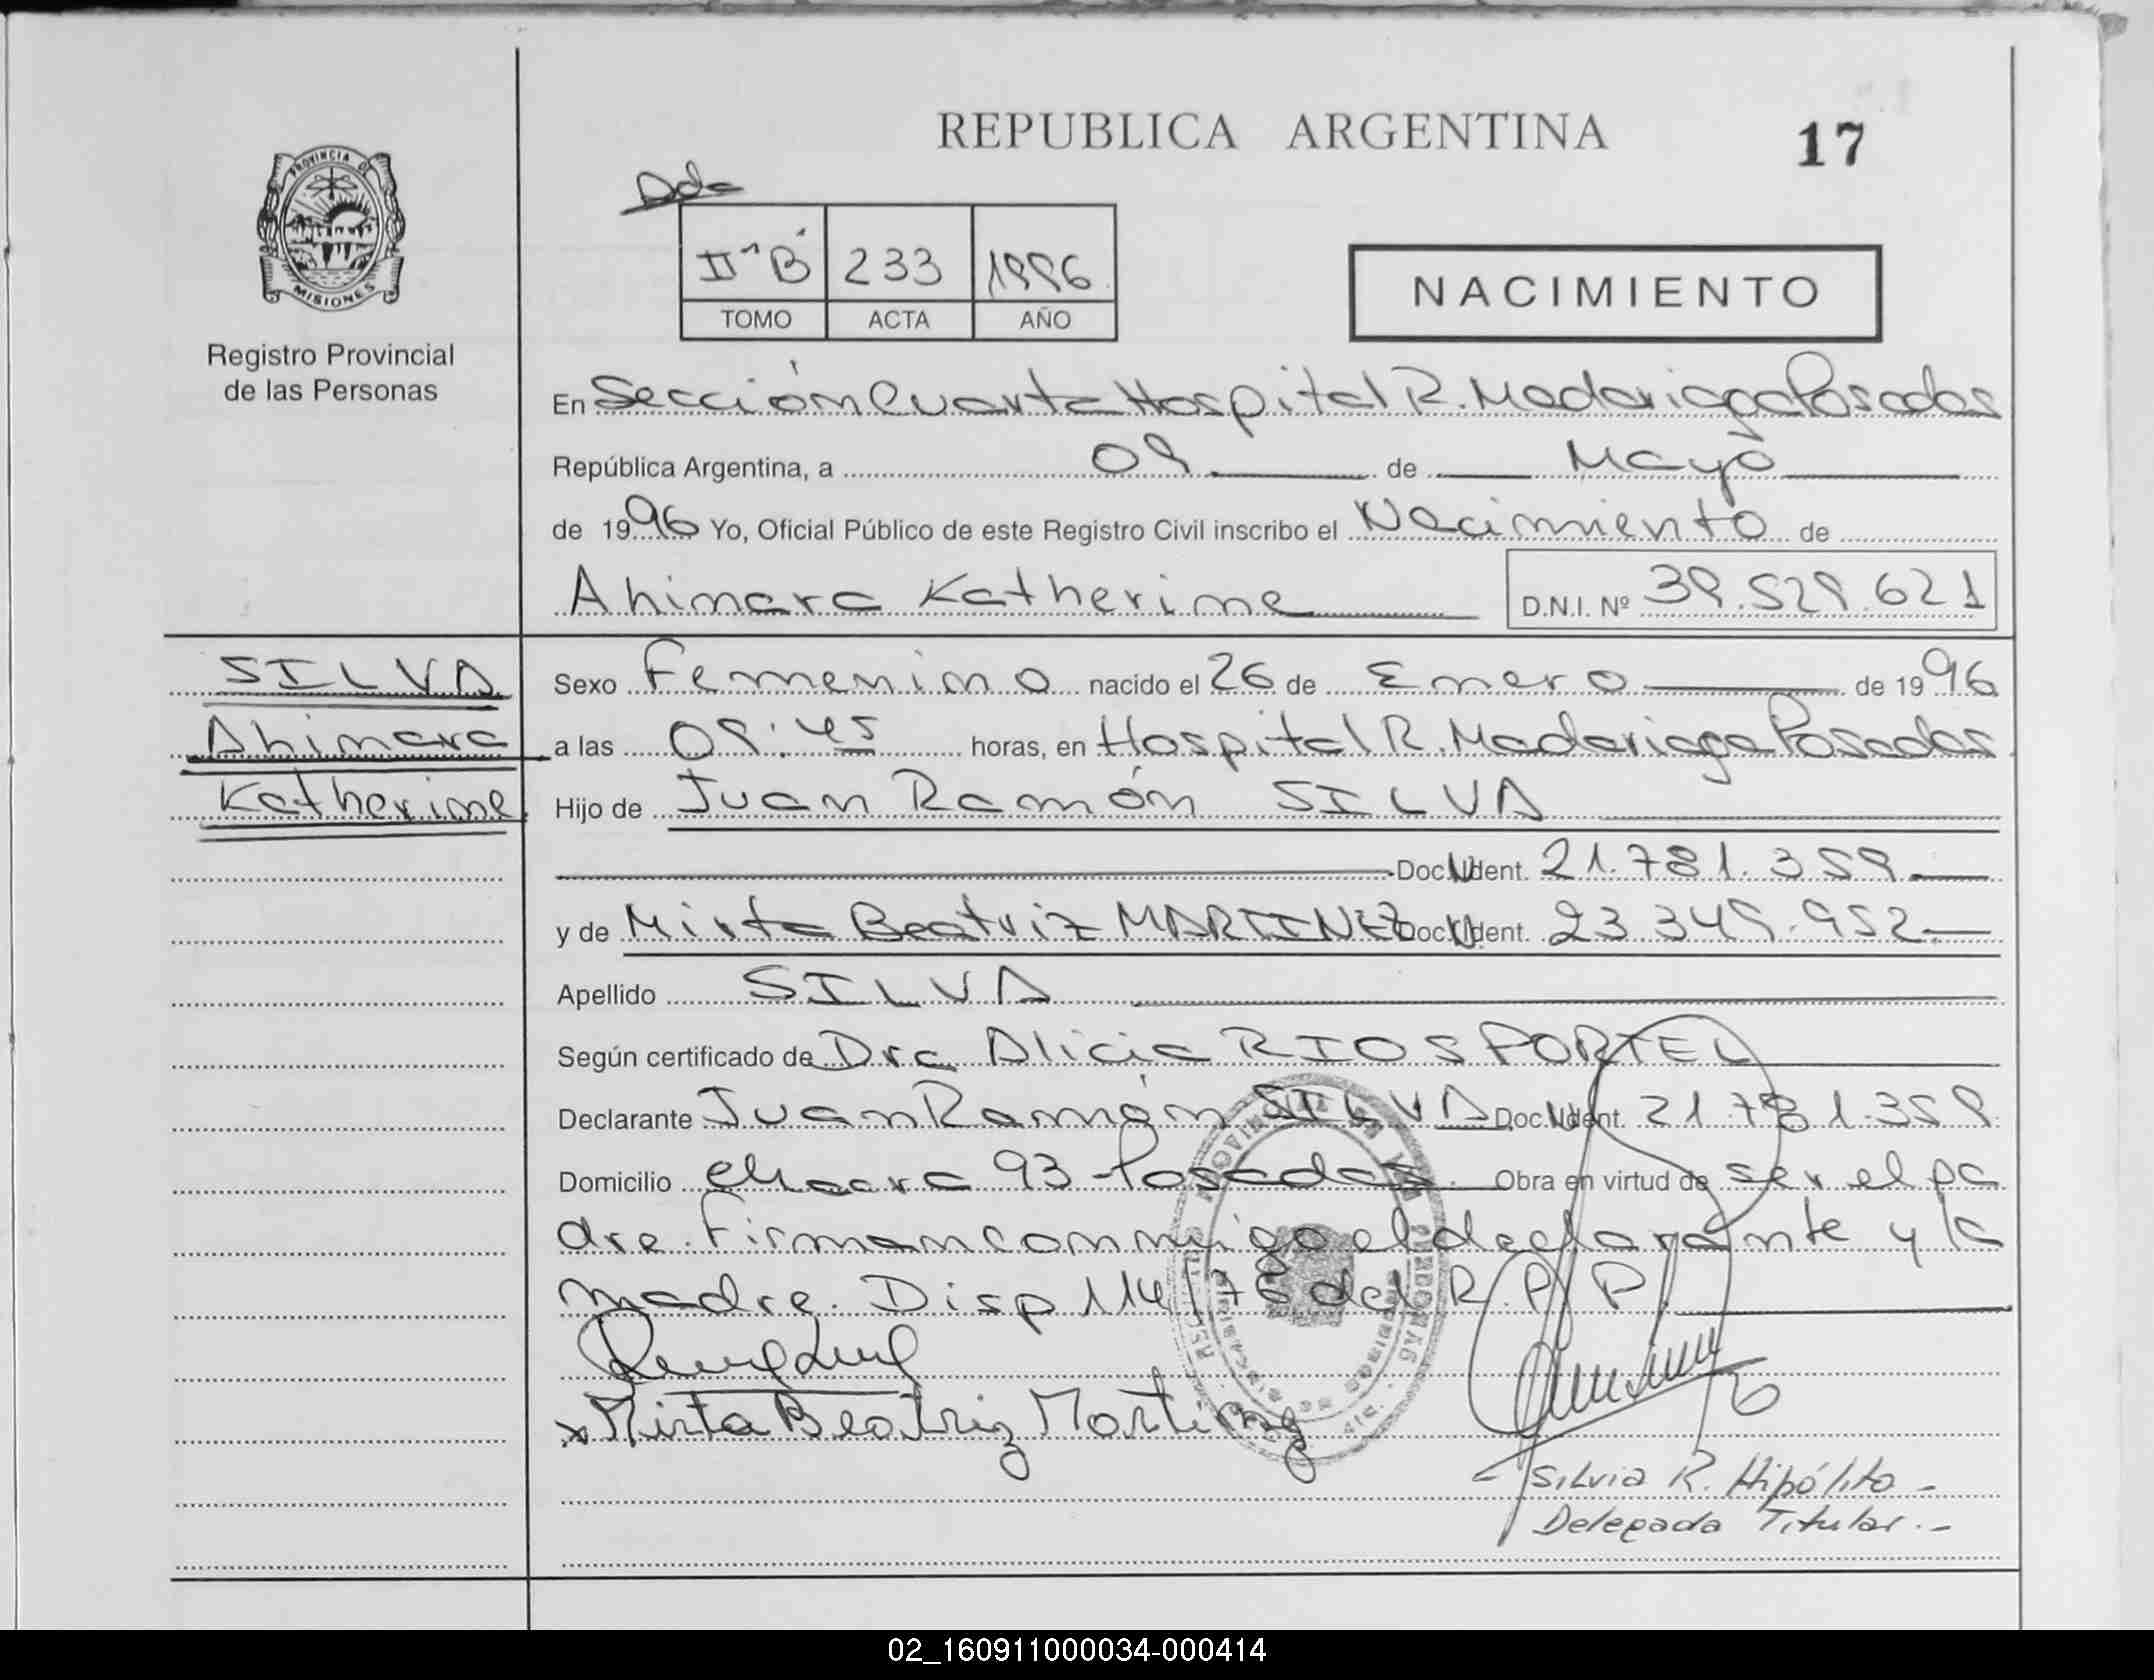 REPUBLICA ARGENTINA
17
PROVINCIA DE
MISIONES
Registro Provincial
de las Personas
Dda
IIº "B" 233 1996
TOMO ACTA AÑO
NACIMIENTO
En Sección Cuarta Hospital R. Madariaga Posadas
República Argentina, a 09 de Mayo
de 1996 Yo, Oficial Público de este Registro Civil inscribo el Nacimiento de
Ahimara Katherine D.N.I. Nº 39.529.621
SILVA
Ahimara
Katherine
Sexo Femenino nacido el 26 de Enero de 1996
a las 09:45 horas, en Hospital R. Madariaga Posadas
Hijo de Juan Ramón SILVA
Doc. Ident. 21.781.359
y de Mirta Beatriz MARTINEZ Doc. Ident. 23.349.952
Apellido SILVA
Según certificado de Dra Alicia RIOS PORTEL
Declarante Juan Ramón SILVA Doc. Ident. 21.781.359
Domicilio Chacra 93 - Posadas. Obra en virtud de ser el pa
dre. Firman conmigo el declarante y la
madre. Disp 114/76 del R.P.P.
x Mirta Beatriz Martinez
Silvia R. Hipólito -
Delegada Titular.-
02_160911000034-000414